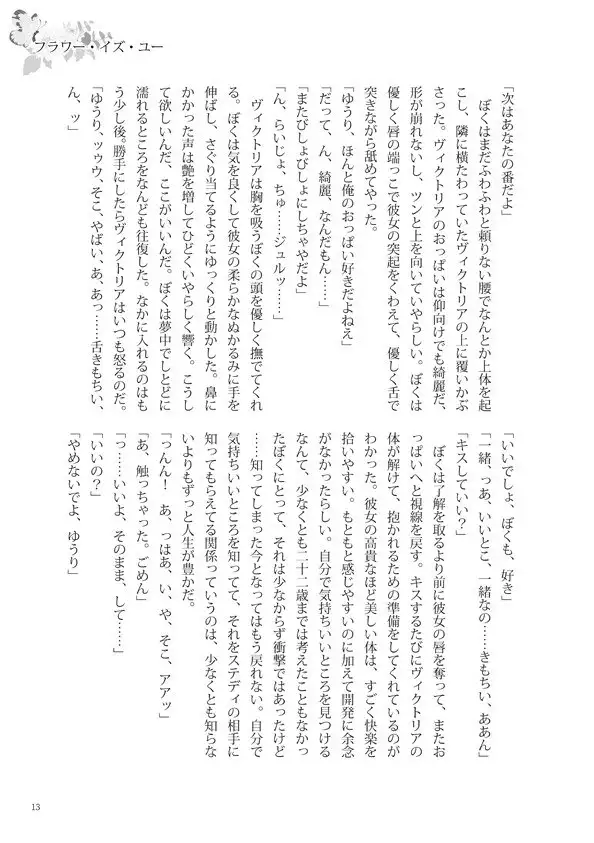 フラワー・イズ・ユー
「次はあなたの番だよ」
　ぼくはまだふわふわと頼りない腰でなんとか上体を起
こし、隣に横たわっていたヴィクトリアの上に覆いかぶ
さった。ヴィクトリアのおっぱいは仰向けでも綺麗だ、
形が崩れないし、ツンと上を向いていやらしい。ぼくは
優しく唇の端っこで彼女の突起をくわえて、優しく舌で
突きながら舐めてやった。
「ゆうり、ほんと俺のおっぱい好きだよねえ」
「だって、ん、綺麗、なんだもん……」
「またびしょびしょにしちゃやだよ」
「ん、らいじょ、ちゅ……ジュルッ……」
　ヴィクトリアは胸を吸うぼくの頭を優しく撫でてくれ
る。ぼくは気を良くして彼女の柔らかなぬかるみに手を
伸ばし、さぐり当てるようにゆっくりと動かした。鼻に
かかった声は艶を増してひどくいやらしく響く。こうし
て欲しいんだ、ここがいいんだ。ぼくは夢中でしとどに
濡れるところをなんども往復した。なかに入れるのはも
う少し後。勝手にしたらヴィクトリアはいつも怒るのだ。
「ゆうり、ッゥウ、そこ、やばい、あ、あっ……舌きもちい、
ん、ッ」
「いいでしょ、ぼくも、好き」
「一緒、っあ、いいとこ、一緒なの……きもちい、ああん」
「キスしていい？」
　ぼくは了解を取るより前に彼女の唇を奪って、またお
っぱいへと視線を戻す。キスするたびにヴィクトリアの
体が解けて、抱かれるための準備をしてくれているのが
わかった。彼女の高貴なほど美しい体は、すごく快楽を
拾いやすい。もともと感じやすいのに加えて開発に余念
がなかったらしい。自分で気持ちいいところを見つける
なんて、少なくとも二十二歳までは考えたこともなかっ
たぼくにとって、それは少なからず衝撃ではあったけど
……知ってしまった今となってはもう戻れない。自分で
気持ちいいところを知ってて、それをステディの相手に
知ってもらえてる関係っていうのは、少なくとも知らな
いよりもずっと人生が豊かだ。
「っんん！　あ、っはあ、い、や、そこ、アアッ」
「あ、触っちゃった。ごめん」
「っ……いいよ、そのまま、して……」
「いいの？」
「やめないでよ、ゆうり」
13